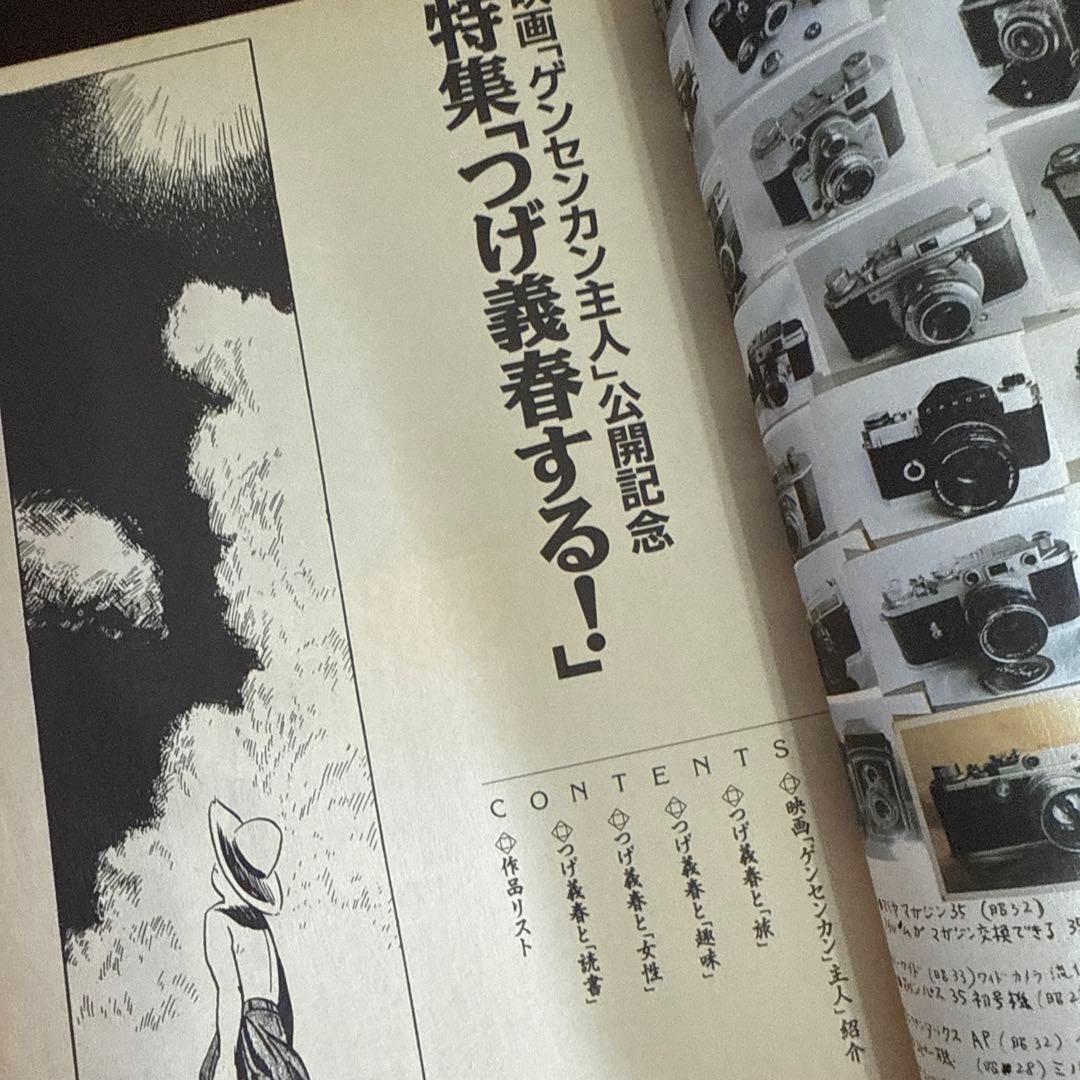 映画「ゲンセンカン主人」公開記念
特集「つげ義春する!」
CONTENTS
映画「ゲンセンカン」主人」紹介
つげ義春と「旅」
つげ義春と「趣味」
つげ義春と「女性」
つげ義春と「読書」
作品リスト
CANON
マガジン35 (昭32)
マガジン交換できる 35
ワイド (昭33) ワイドカメラ流
35 初号機 (昭2
ックス AP (昭32)
機 (昭28) ミノ